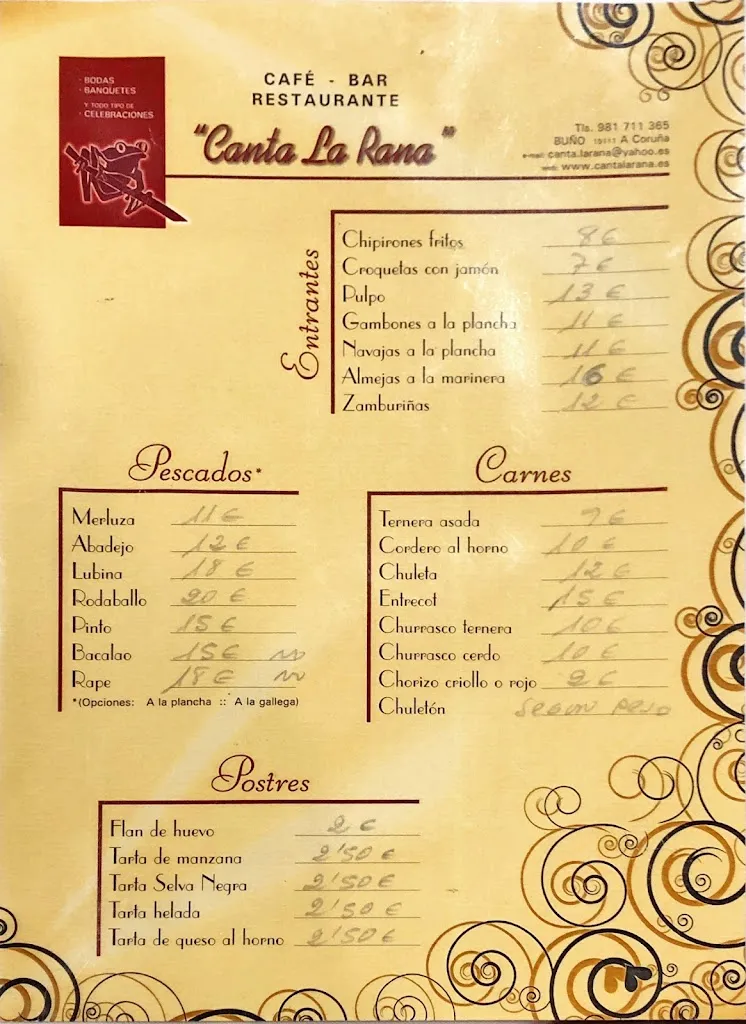 BODAS
BANQUETES
Y TODO TIPO DE
CELEBRACIONES
CAFÉ - BAR
RESTAURANTE
"Canta La Rana"
Tls. 981 711 365
BUÑO 15111 A Coruña
e-mail: canta.larana@yahoo.es
web: www.cantalarana.es
Entrantes
Chipirones fritos 8 €
Croquetas con jamón 7 €
Pulpo 13 €
Gambones a la plancha 11 €
Navajas a la plancha 11 €
Almejas a la marinera 16 €
Zamburiñas 12 €
Pescados*
Merluza 11 €
Abadejo 12 €
Lubina 18 €
Rodaballo 20 €
Pinto 15 €
Bacalao 15 € NO
Rape 18 € NO
*(Opciones: A la plancha :: A la gallega)
Carnes
Ternera asada 9 €
Cordero al horno 10 €
Chuleta 12 €
Entrecot 15 €
Churrasco ternera 10 €
Churrasco cerdo 10 €
Chorizo criollo o rojo 2 €
Chuletón SEGUN PESO
Postres
Flan de huevo 2 €
Tarta de manzana 2'50 €
Tarta Selva Negra 2'50 €
Tarta helada 2'50 €
Tarta de queso al horno 2'50 €